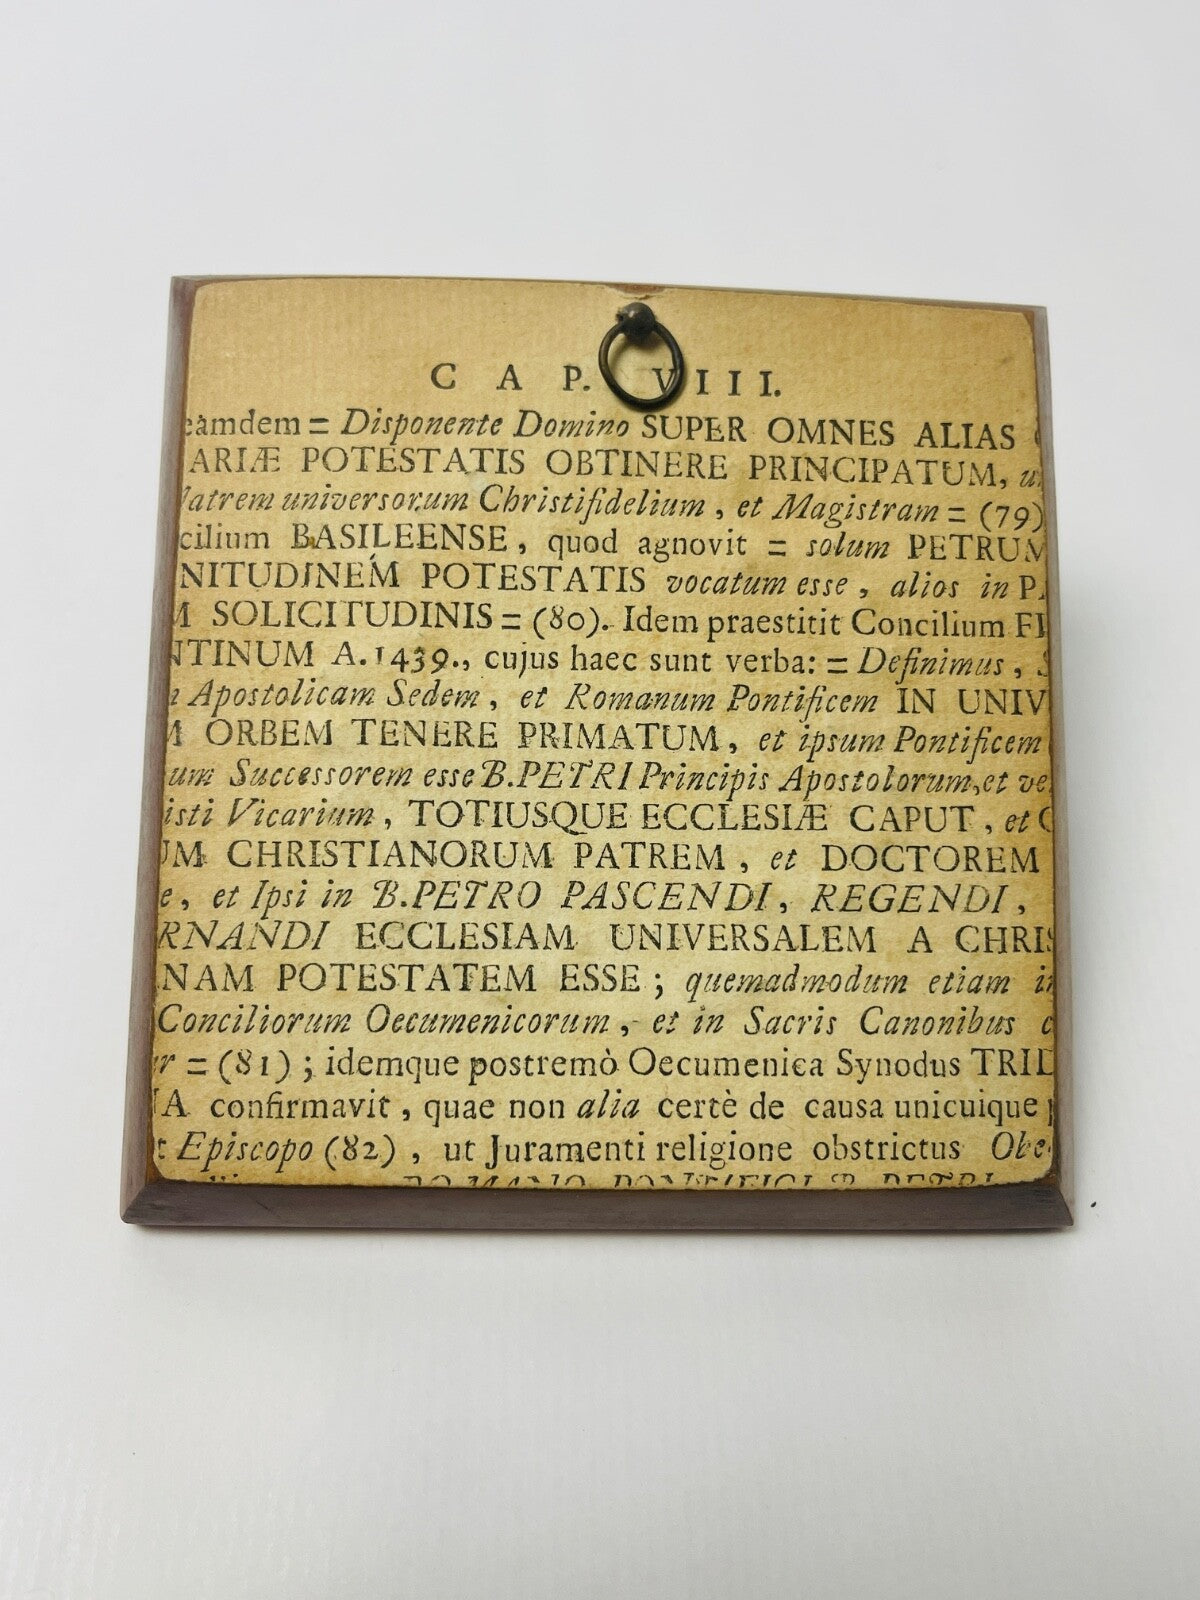 CAP. VIII.
eâmdem = Disponente Domino SUPER OMNES ALIAS
ARIÆ POTESTATIS OBTINERE PRINCIPATUM, u
Matrem universorum Christifidelium, et Magistram = (79)
cilium BASILEENSE, quod agnovit = solum PETRUM
NITUDINEM POTESTATIS vocatum esse, alios in P
M SOLICITUDINIS = (80). Idem praestitit Concilium F
NTINUM A. 1439., cujus haec sunt verba: = Definimus, S
Apostolicam Sedem, et Romanum Pontificem IN UNIV
M ORBEM TENERE PRIMATUM, et ipsum Pontificem
um Successorem esse B. PETRI Principis Apostolorum, et ve
isti Vicarium, TOTIUSQUE ECCLESIÆ CAPUT, et
UM CHRISTIANORUM PATREM, et DOCTOREM
e, et Ipsi in B. PETRO PASCENDI, REGENDI,
RNANDI ECCLESIAM UNIVERSALEM A CHRIS
NAM POTESTATEM ESSE; quemadmodum etiam i
Conciliorum Oecumenicorum, et in Sacris Canonibus c
r = (81); idemque postremò Oecumenica Synodus TRID
A confirmavit, quae non alia certè de causa unicuique
t Episcopo (82), ut Juramenti religione obstrictus Obe
ROMANO PONTIFICI B. PETRI